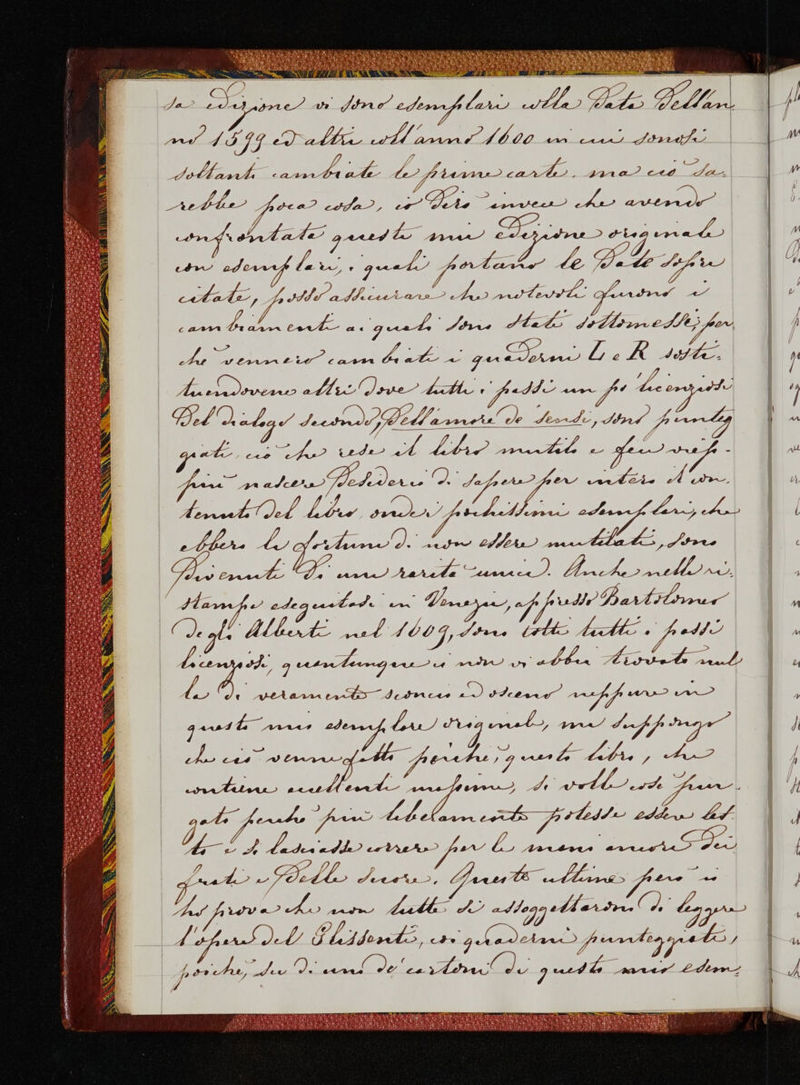 sa edizione vi sono esemplari colla Data Dell'an
no 1599 ed altri coll'anno 1600 in cui sonosi
soltanto cambiate le prime carte. ma ciò sa-
rebbe poca cosa, io Dirò invece che avendo
confrontata questa mia edizione originale
con esemplari, i quali portano le Date sopra
citate, posso assicurare che notevoli furono i
cambiamenti ai quali sono stati sottomessi; per
che vennero cambiati i quaderni L e R sosti-
tuendovene altri Dove tutti i passi un po' licenziosi
Del Dialogo secondo, Dell'amore De sensi, sono punteg
giati, ciò che rese il libro mutilo e feu vieḿ-
più nascere Desiderio Di sapere per intero il con-
tenuto Del libro onde i pochissimi esemplari, che
ebbero la fortuna Di non essere mutilati, sono
Divenuti Di una rarità unica. Anche nella ri-
stampa eseguitasi in Venezia, appresso Bartolomeo
Degli Alberti nel 1609, sono tolti tutti i passi
licenziosi, quantunque io non vi abbia trovato nul
la Di veramente sconcio ed osceno neppure in
questo mio esemplare originale, ma suppongo
che ciò venne fatto poiché, questo libro, che
contiene eccellenti massime, si volle così pur-
gato perché più liberamente potesse esser let-
to e si lasciasse correre per le mani ancora Dei
frati e Delle suore. Queste ultime però io
ho prova che non tutte si assoggettarono Di leggere
l'opera Del Glissenti, coi quaderni punteggiati,
poiché, su Di uno De' cartoni Di questo mio esem-